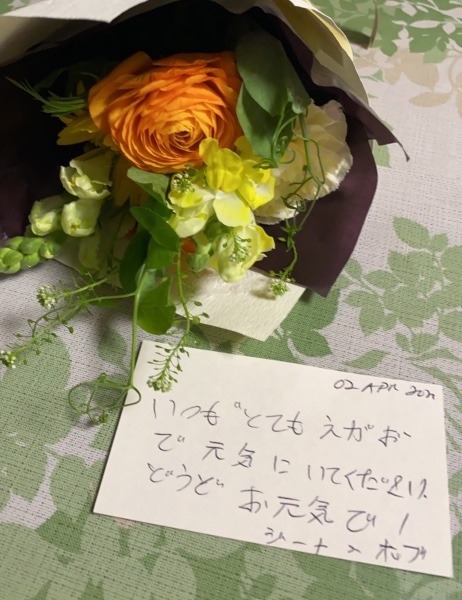 02 APR
いつも とても えがお
で 元気 に いてください
どうど お元気で!
シーナ × ホップ